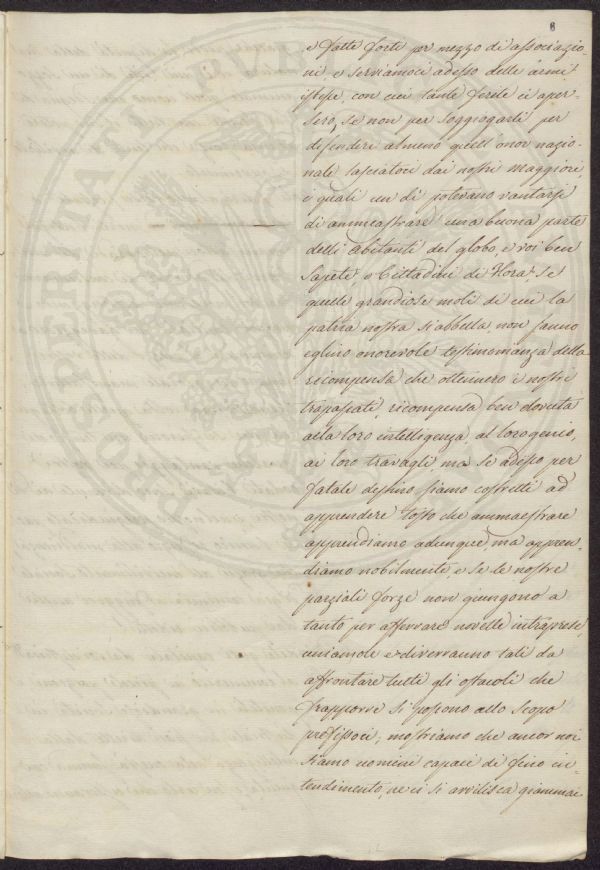 8
e fatte forti per mezzo di associazio-
ni, e serviamoci adesso delle armi
istesse, con cui tante ferite ci aper-
sero, se non per soggiogarli per
difendere almeno quell'onor nazio-
nale lasciatoci dai nostri maggiori,
i quali un dì potevano vantarsi
di ammaestrare una buona parte
delli abitanti del globo, e voi ben
sapete, o Cittadini di Flora, se
quelle grandiose moli di cui la
patria nostra s'abbella non fanno
eglino onorevole testimonianza della
ricompensa che ottennero i nostri
trapassati, ricompensa ben dovuta
alla loro intelligenza, al loro genio,
ai loro travagli, ma se adesso per
fatale destino siamo costretti ad
apprendere tosto che ammaestrare
apprendiamo adunque, ma appren-
diamo nobilmente, e se le nostre
parziali forze non giungono a
tanto per attivare novelle intraprese,
uniamole e diverranno tali da
affrontare tutti gli ostacoli che
frapporre si possono allo scopo
prefissoci; mostriamo che ancor noi
siamo uomini capaci di fino in-
tendimento, ne ci si avvilisca giammai
PROSPERITATI PVBLICAE